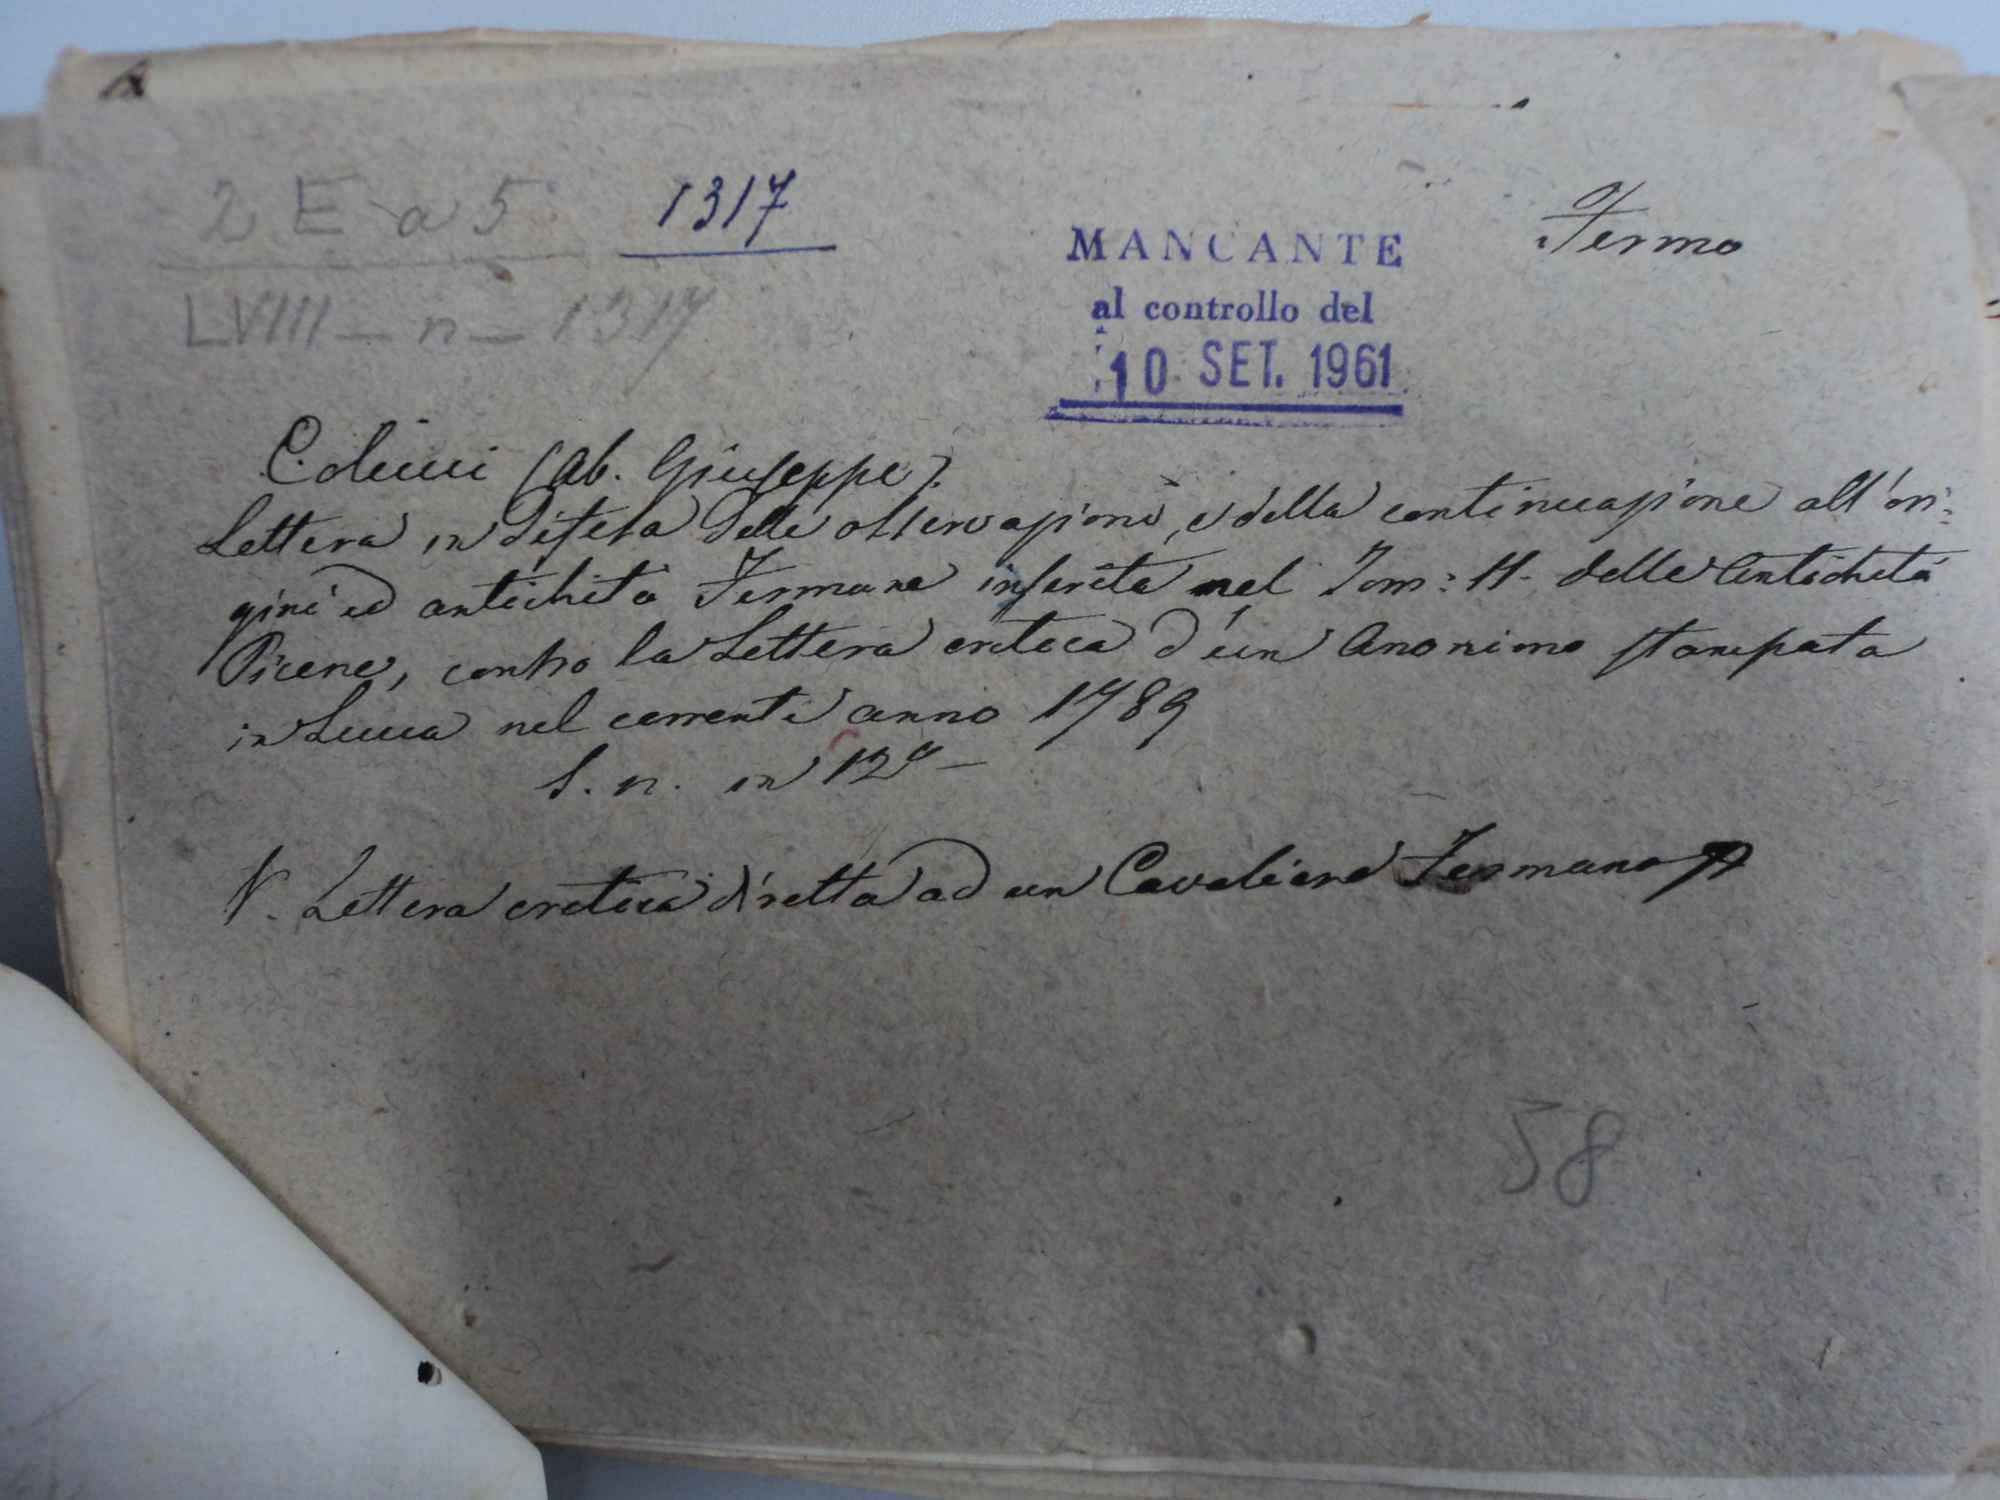 2 E a 5 1317
Fermo
LVIII - n - 1317
MANCANTE
al controllo del
10 SET. 1961
Colucci (Ab. Giuseppe).
Lettera in difesa delle osservazioni, e della continuazione all'ori-
gini ed antichità Fermane inserita nel Tom: II. delle Antichità
Picene, contro la Lettera critica d'un Anonimo stampata
in Lucca nel corrente anno 1789
S. n. in 12º -
V. Lettera critica diretta ad un Cavaliere Fermano
58